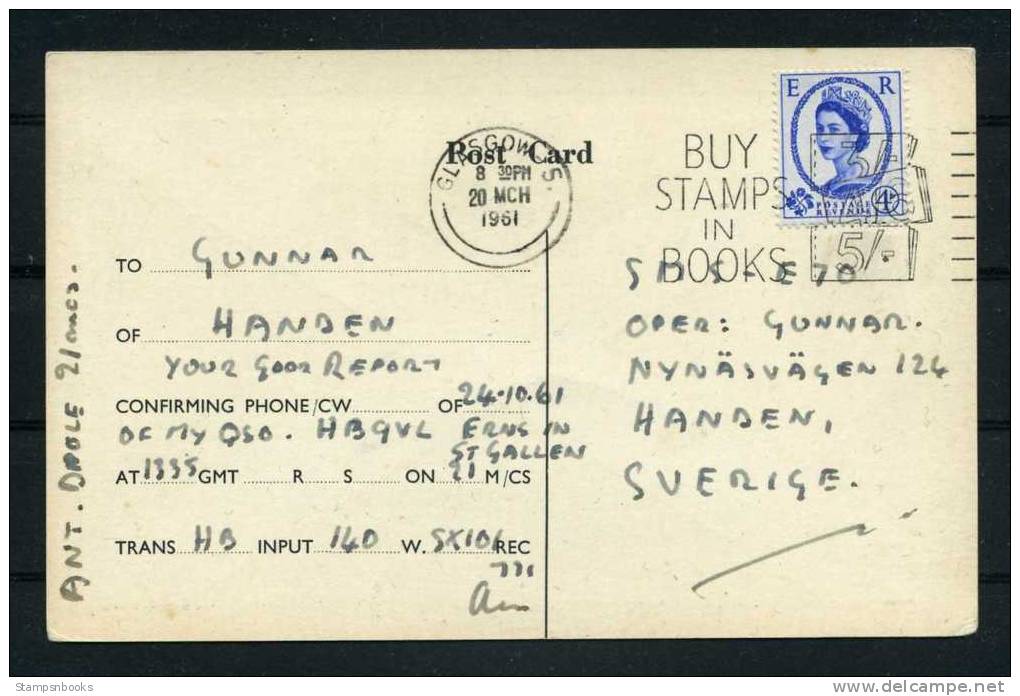 Post Card
GLASGOW
8 30PM
20 MCH
1961
BUY
STAMPS
IN
BOOKS
3/-
5/-
E R
POSTAGE
REVENUE
4D
TO GUNNAR
OF HANDEN
YOUR GOOD REPORT
CONFIRMING PHONE/CW OF 24.10.61
OF MY QSO. HB9VL ERNS IN
ST GALLEN
AT 1335 GMT R S ON 21 M/CS
TRANS HB INPUT 140 W. SX101 REC
ANT. DPOLE 21 mcs.
SM5-E70
OPER: GUNNAR.
NYNÄSVÄGEN 124
HANDEN,
SVERIGE.
Stampsnbooks
www.delcampe.net